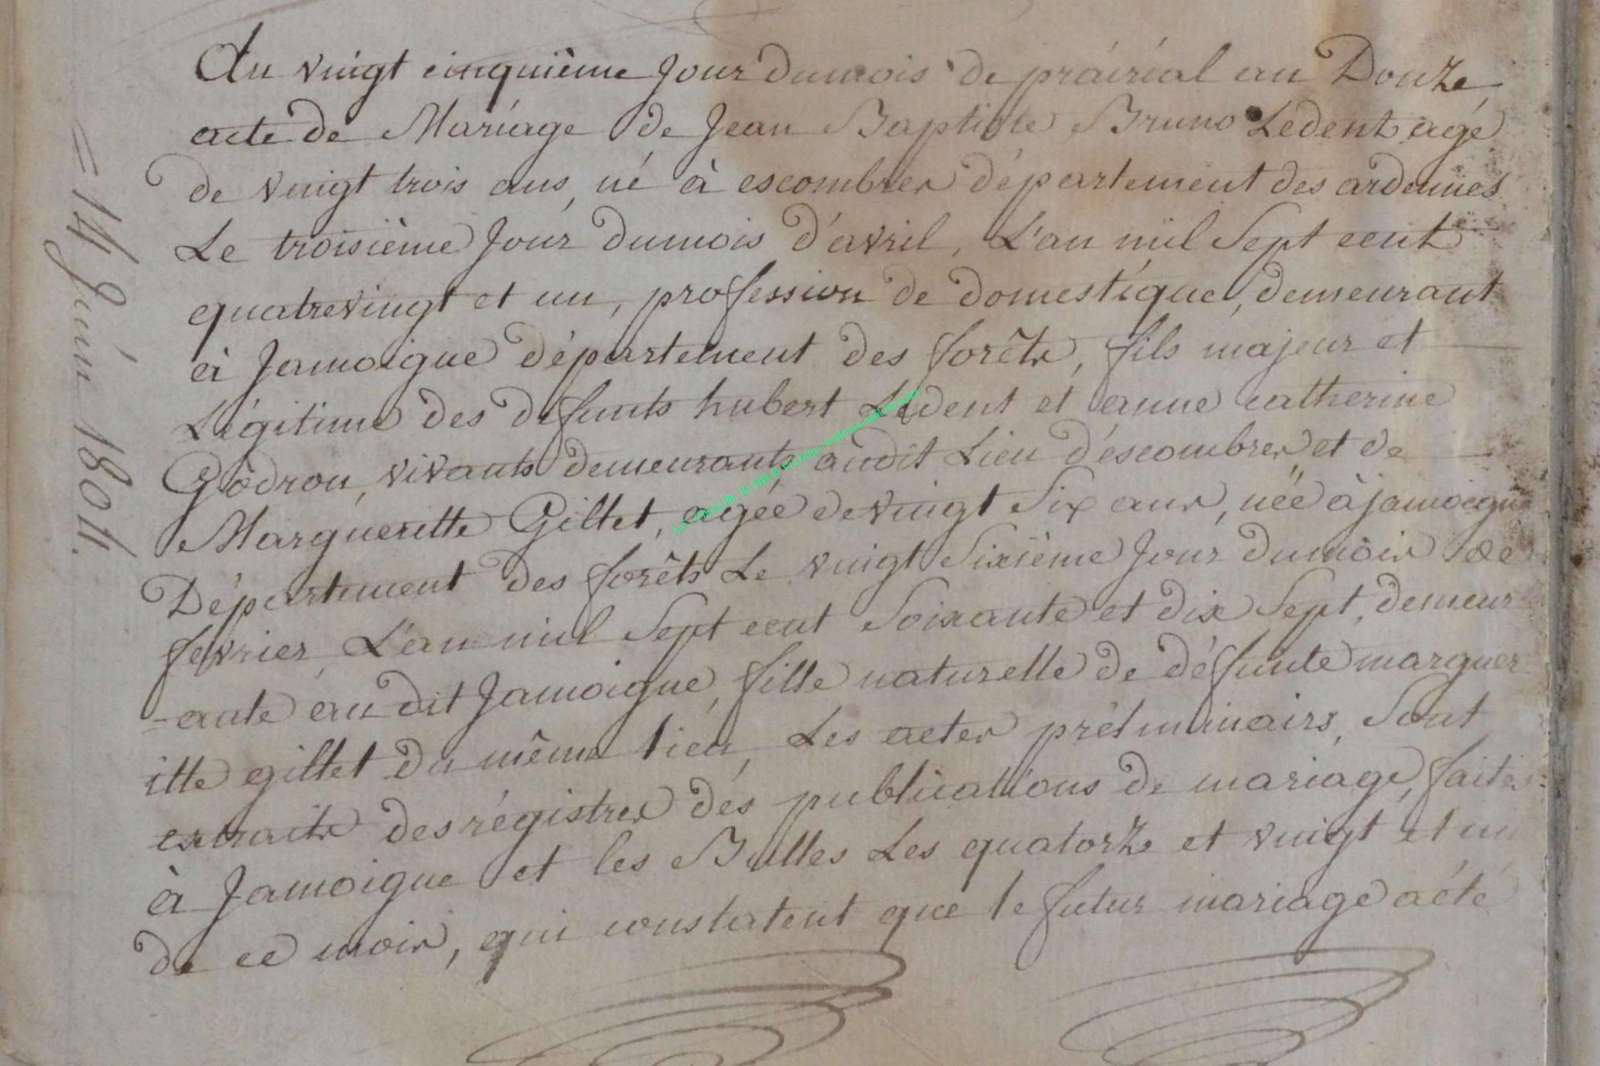 Du vingt cinquième Jour du mois de prairial an Douze,
acte de Mariage de Jean Baptiste Bruno Ledent agé
de vingt trois ans, né à escombres département des ardennes
Le troisième Jour du mois d'avril, L'an mil Sept cent
quatrevingt et un, profession de domestique, demeurant
à Jamoigue département des forêts, fils majeur et
Légitime des défunts hubert Ledent et anne catherine
Gôdron, vivants demeurants audit Lieu d'éscombres et de
Margueritte Gillet, agée de vingt Six ans, née à jamoigue
Département des forêts Le vingt Sixième Jour du mois de
fevrier L'an mil Sept cent Soixante et dix Sept, demeur
-ante au dit Jamoigue, fille naturelle de défunte marguer
itte gillet du même lieu, Les actes préliminairs, Sont
extraits des régistres dés publications de mariage, faites
à Jamoigue et les Bulles Les quatorze et vingt et un
de ce mois, qui constatent que le futur mariage a été
= 14 Juin 1804.